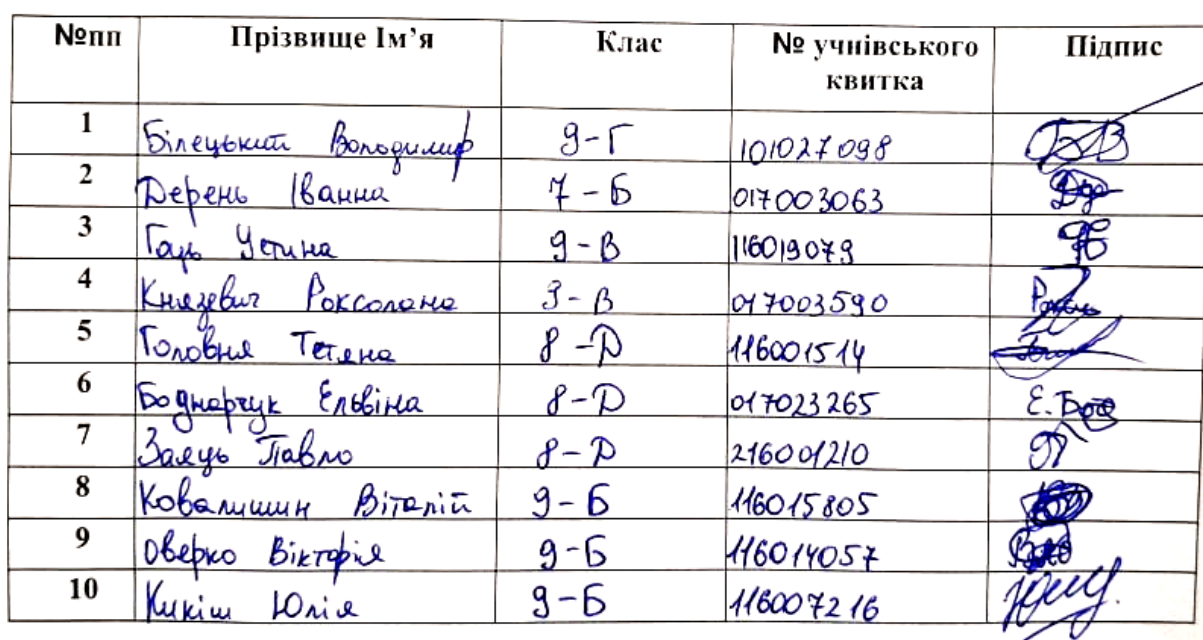 №пп Прізвище Ім’я Клас № учнівського квитка Підпис
1 Білецький Володимир 9-Г 101027098 БВ
2 Дерень Іванна 7-Б 017003063
3 Гаць Устина 9-В 116019079
4 Князевич Роксолана 9-В 017003590
5 Головня Тетяна 8-Д 116001514
6 Боднарчук Ельвіна 8-Д 017023265 Е.Бод
7 Заяць Павло 8-Д 216001210
8 Ковалишин Віталій 9-Б 116015805
9 Оверко Вікторія 9-Б 116014057
10 Кикіш Юлія 9-Б 116007216